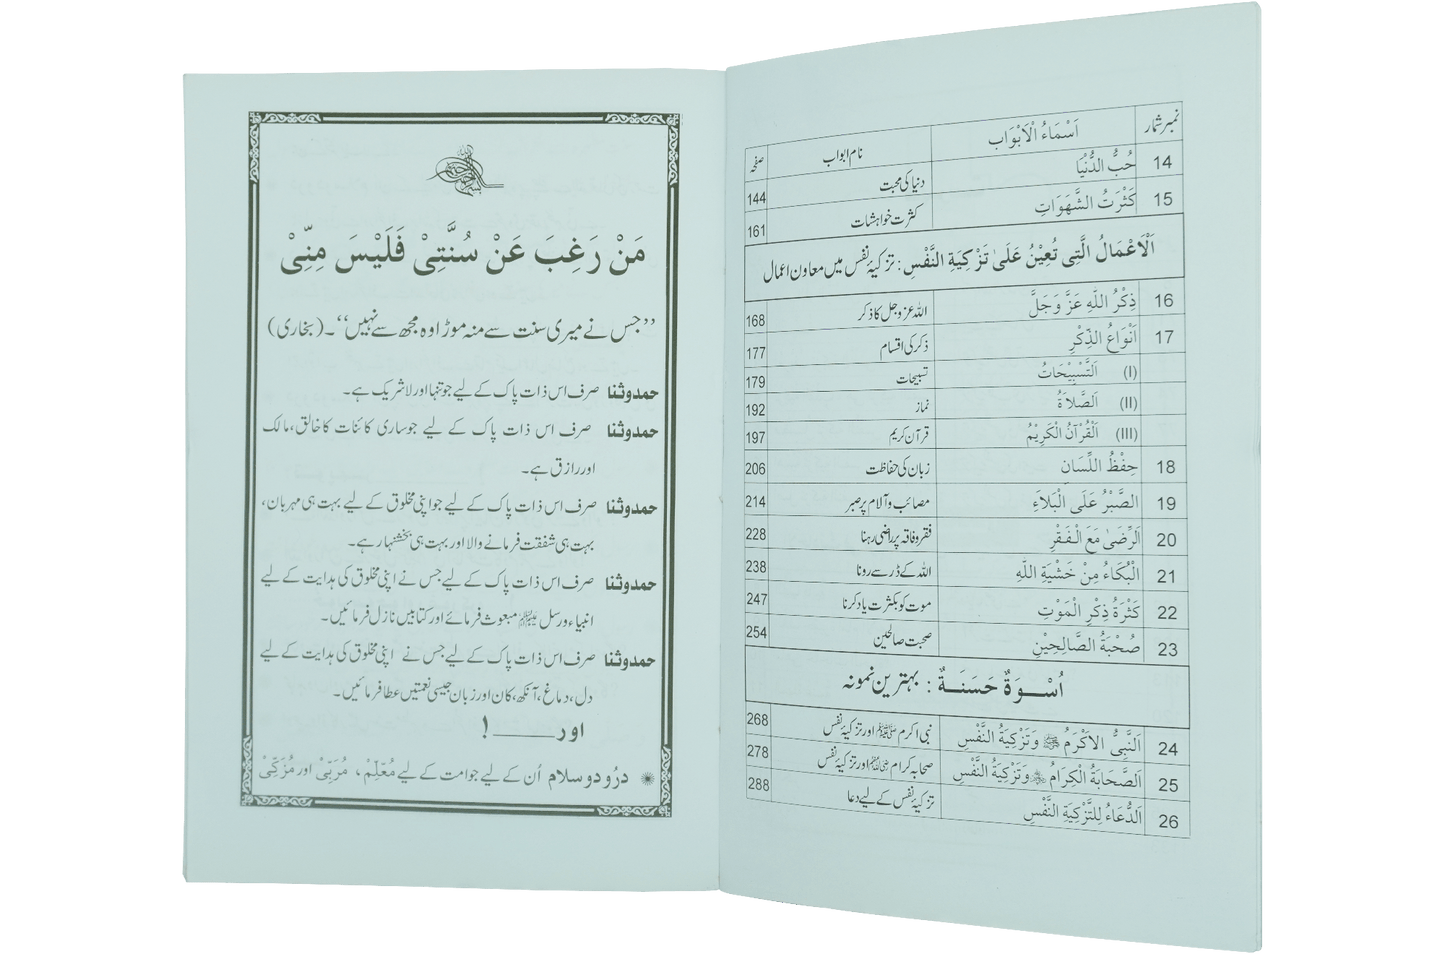 نمبر شمار اَسْمَاءُ الْاَبْوَاب نام ابواب صفحہ
14 حُبُّ الدُّنْيَا دنیا کی محبت 144
15 كَثْرَتُ الشَّهَوَاتِ کثرت خواہشات 161
اَلْاَعْمَالُ الَّتِى تُعِيْنُ عَلٰى تَزْكِيَةِ النَّفْسِ : تزکیۂ نفس میں معاون اعمال
16 ذِكْرُ اللّٰهِ عَزَّ وَجَلَّ اللہ عزوجل کا ذکر 168
17 اَنْوَاعُ الذِّكْرِ ذکر کی اقسام 177
(I) اَلتَّسْبِيْحَاتُ تسبیحات 179
(II) اَلصَّلَاةُ نماز 192
(III) اَلْقُرْآنُ الْكَرِيْمُ قرآن کریم 197
18 حِفْظُ اللِّسَانِ زبان کی حفاظت 206
19 الصَّبْرُ عَلَى الْبَلَاءِ مصائب و آلام پر صبر 214
20 اَلرِّضٰى مَعَ الْفَقْرِ فقر و فاقہ پر راضی رہنا 228
21 اَلْبُكَاءُ مِنْ خَشْيَةِ اللّٰهِ اللہ کے ڈر سے رونا 238
22 كَثْرَةُ ذِكْرِ الْمَوْتِ موت کو بکثرت یاد کرنا 247
23 صُحْبَةُ الصَّالِحِيْنِ صحبت صالحین 254
اُسْوَةٌ حَسَنَةٌ : بہترین نمونہ
24 اَلنَّبِىُّ الْاَكْرَمُ ﷺ وَتَزْكِيَةُ النَّفْسِ نبی اکرم ﷺ اور تزکیۂ نفس 268
25 اَلصَّحَابَةُ الْكِرَامُ وَتَزْكِيَةُ النَّفْسِ صحابہ کرام اور تزکیۂ نفس 278
26 اَلدُّعَاءُ لِلتَّزْكِيَةِ النَّفْسِ تزکیۂ نفس کے لیے دعا 288
مَنْ رَغِبَ عَنْ سُنَّتِىْ فَلَيْسَ مِنِّىْ
’’جس نے میری سنت سے منہ موڑا وہ مجھ سے نہیں‘‘۔ (بخاری)
حمدوثنا صرف اس ذات پاک کے لیے جو تنہا اور لاشریک ہے۔
حمدوثنا صرف اس ذات پاک کے لیے جو ساری کائنات کا خالق، مالک
اور رازق ہے۔
حمدوثنا صرف اس ذات پاک کے لیے جو اپنی مخلوق کے لیے بہت ہی مہربان،
بہت ہی شفقت فرمانے والا اور بہت ہی بخشنہار ہے۔
حمدوثنا صرف اس ذات پاک کے لیے جس نے اپنی مخلوق کی ہدایت کے لیے
انبیاء و رسل مبعوث فرمائے اور کتابیں نازل فرمائیں۔
حمدوثنا صرف اس ذات پاک کے لیے جس نے اپنی مخلوق کی ہدایت کے لیے
دل، دماغ، آنکھ، کان اور زبان جیسی نعمتیں عطا فرمائیں۔
اور ــــــــــ !
درُود و سلام اُن کے لیے جو امت کے لیے مُعَلِّمْ، مُرَبِّىْ اور مُزَكِّىْ